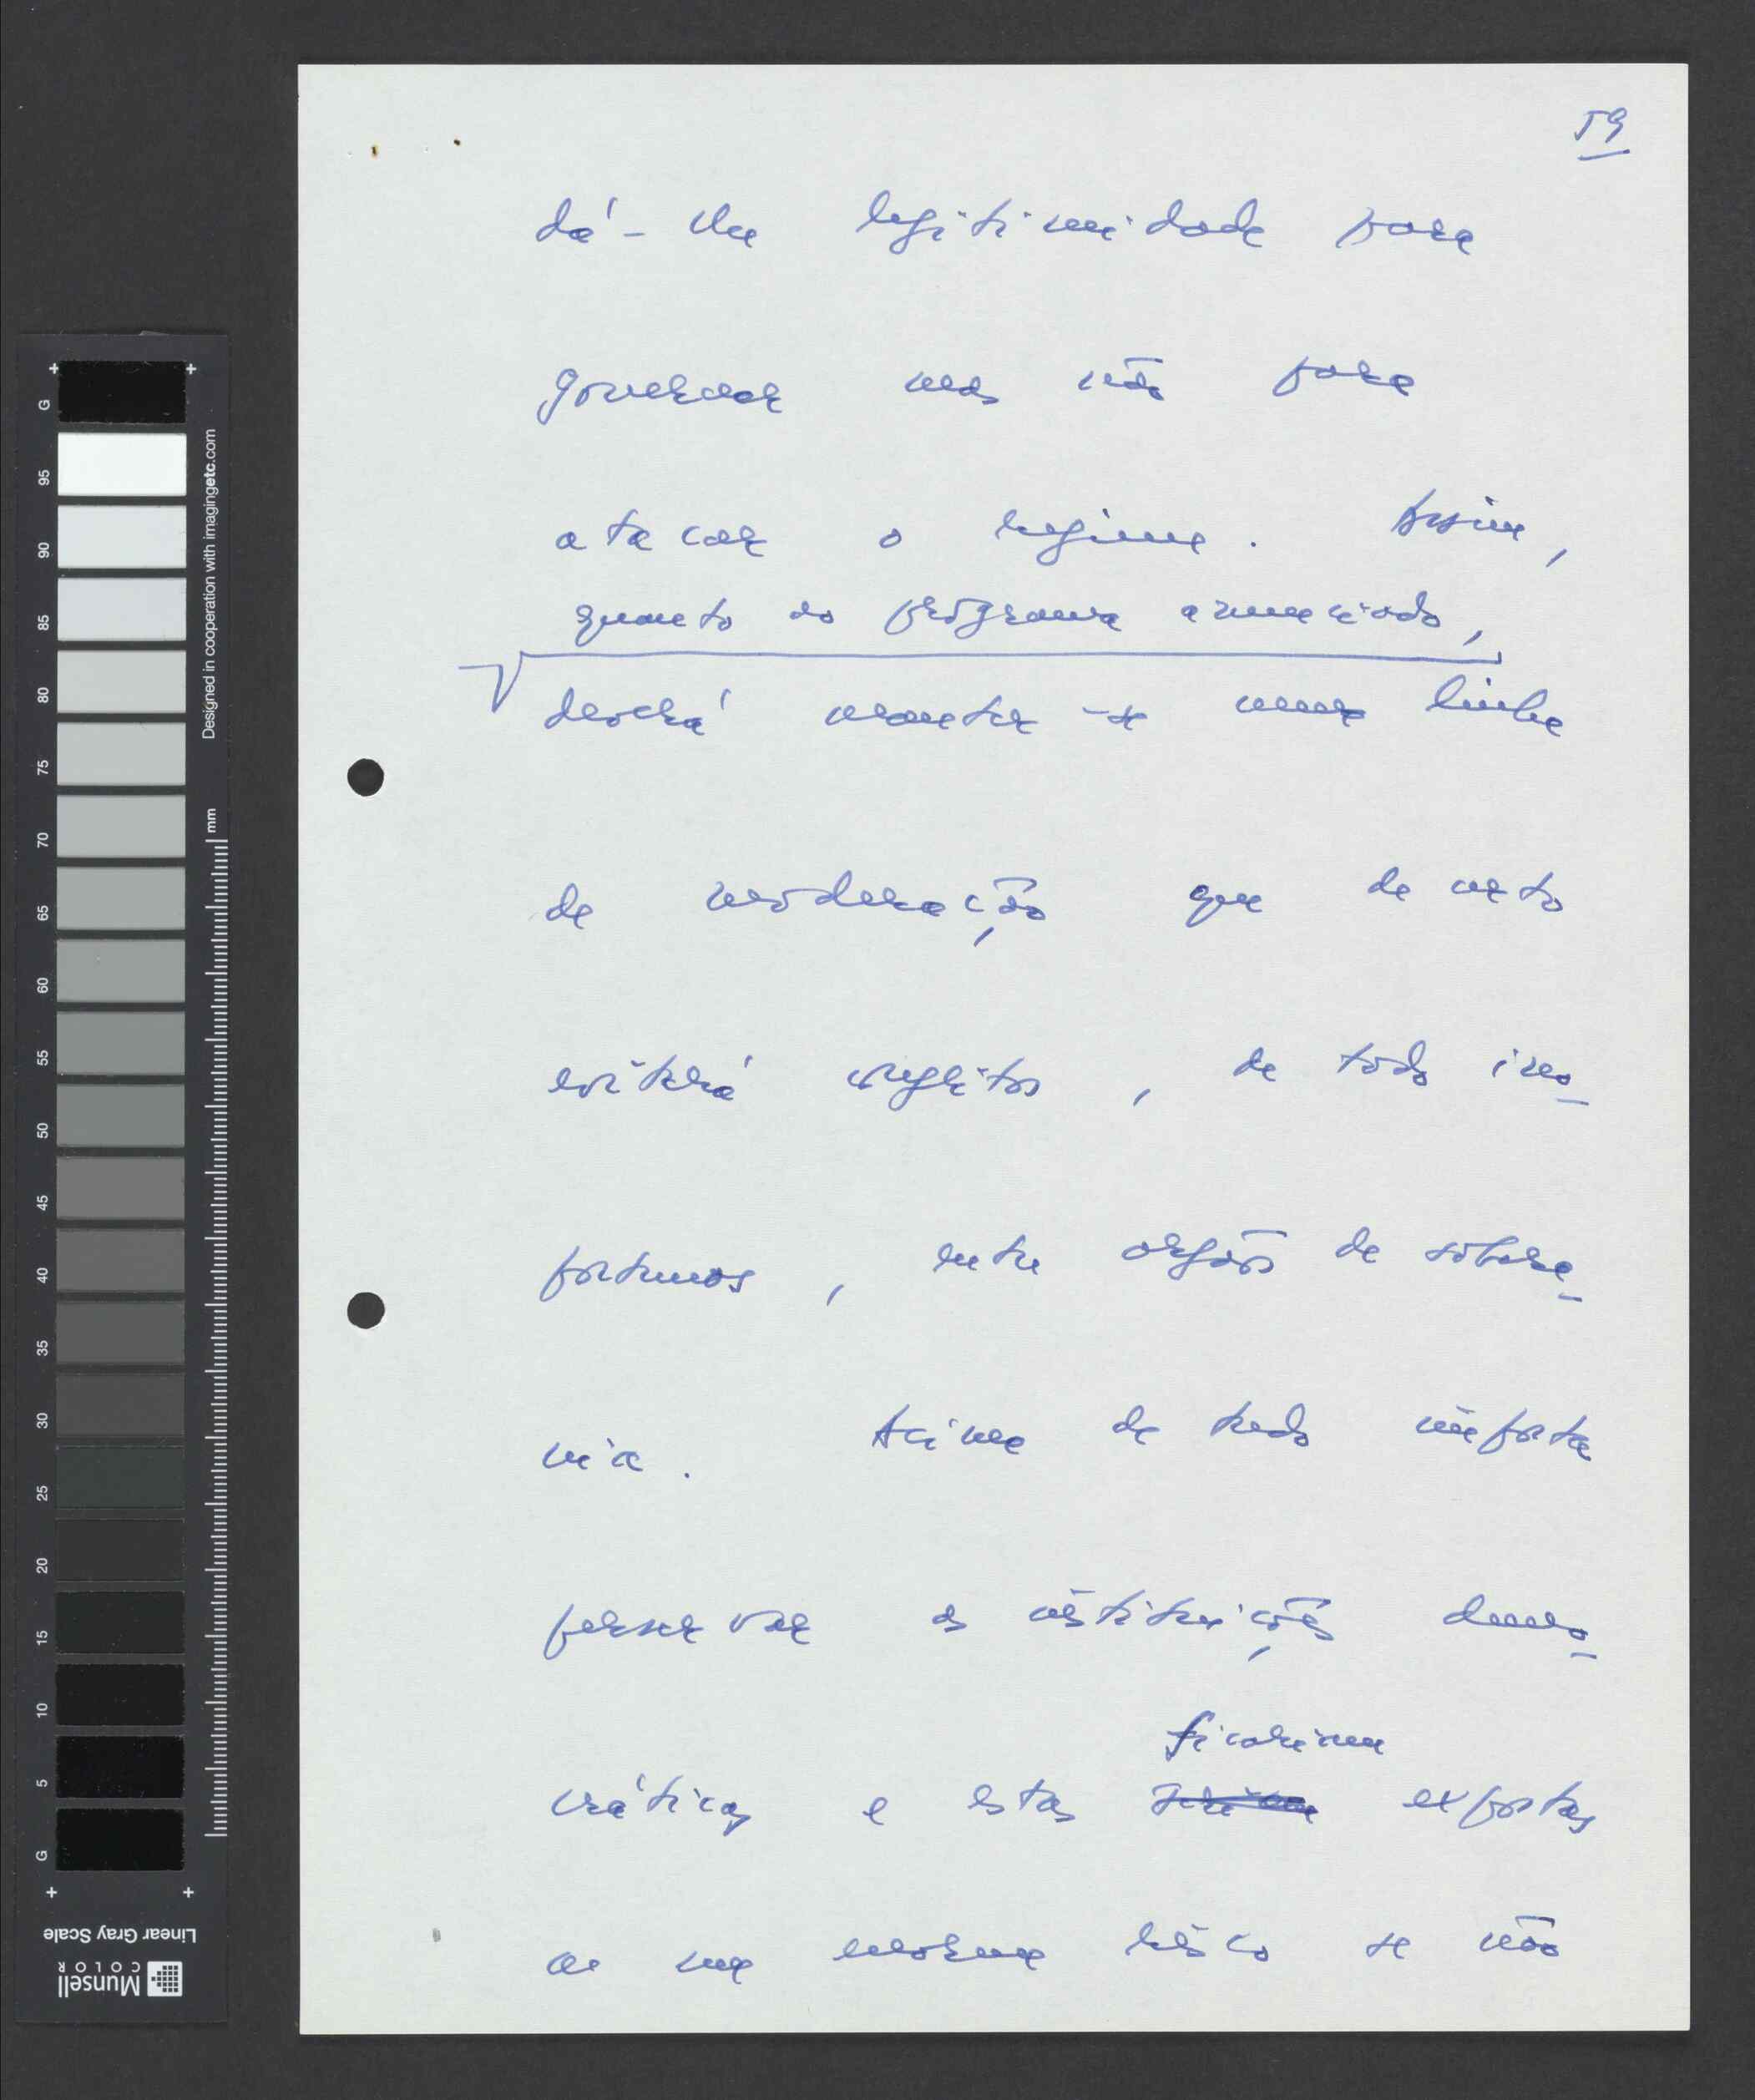 59
dá-lhe legitimidade para
governar mas não para
atacar o regime. Assim,
quanto ao programa anunciado,
deverá manter-se numa linha
de moderação que de certo
evitará conflitos, de todo ino_
portunos, entre orgãos de sobera_
nia. Acima de tudo importa
preservar as instituições demo_
ficariam
cráticas e estas seriam expostas
a um enorme risco se não
G
95
90
85
80
75
70
65
60
55
50
45
40
35
30
25
20
15
10
5
G
Designed in cooperation with imagingetc.com
mm
Linear Gray Scale
Munsell
COLOR